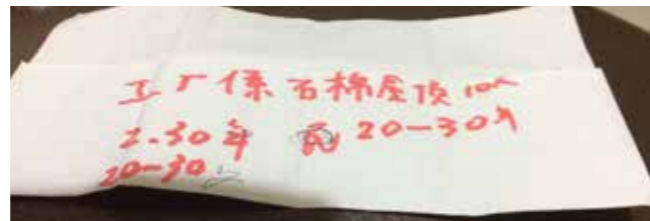 工厂係石棉屋顶10人
2.30年 20-30年
20-30